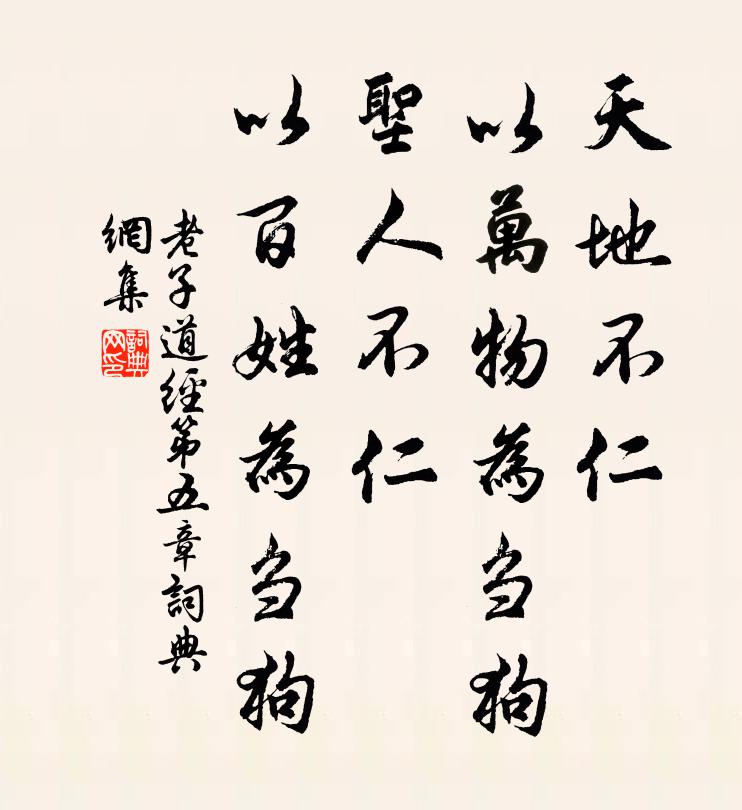 天地不仁
以萬物為刍狗
聖人不仁
以百姓為刍狗
老子道經第五章詞典
網集
詞典
网印